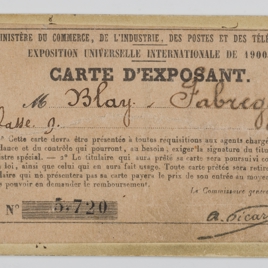 MINISTÈRE DU COMMERCE, DE L'INDUSTRIE, DES POSTES ET DES TÉL
EXPOSITION UNIVERSELLE INTERNATIONALE DE 1900
CARTE D'EXPOSANT.
M Blay, Fabreg
lasse 9.
1° Cette carte devra être présentée à toutes réquisitions aux agents chargé
llance et du contrôle qui pourront, au besoin, exiger la signature du titul
istre spécial. — 2° Le titulaire qui aura prêté sa carte sera poursuivi co
a loi, ainsi que celui qui en aura fait usage. Toute carte prêtée sera retiré
ulaire qui ne présentera pas sa carte payera le prix de son entrée au moyen
pouvoir en demander le remboursement.
Le Commissaire génér
N° 5.720
A. Picar